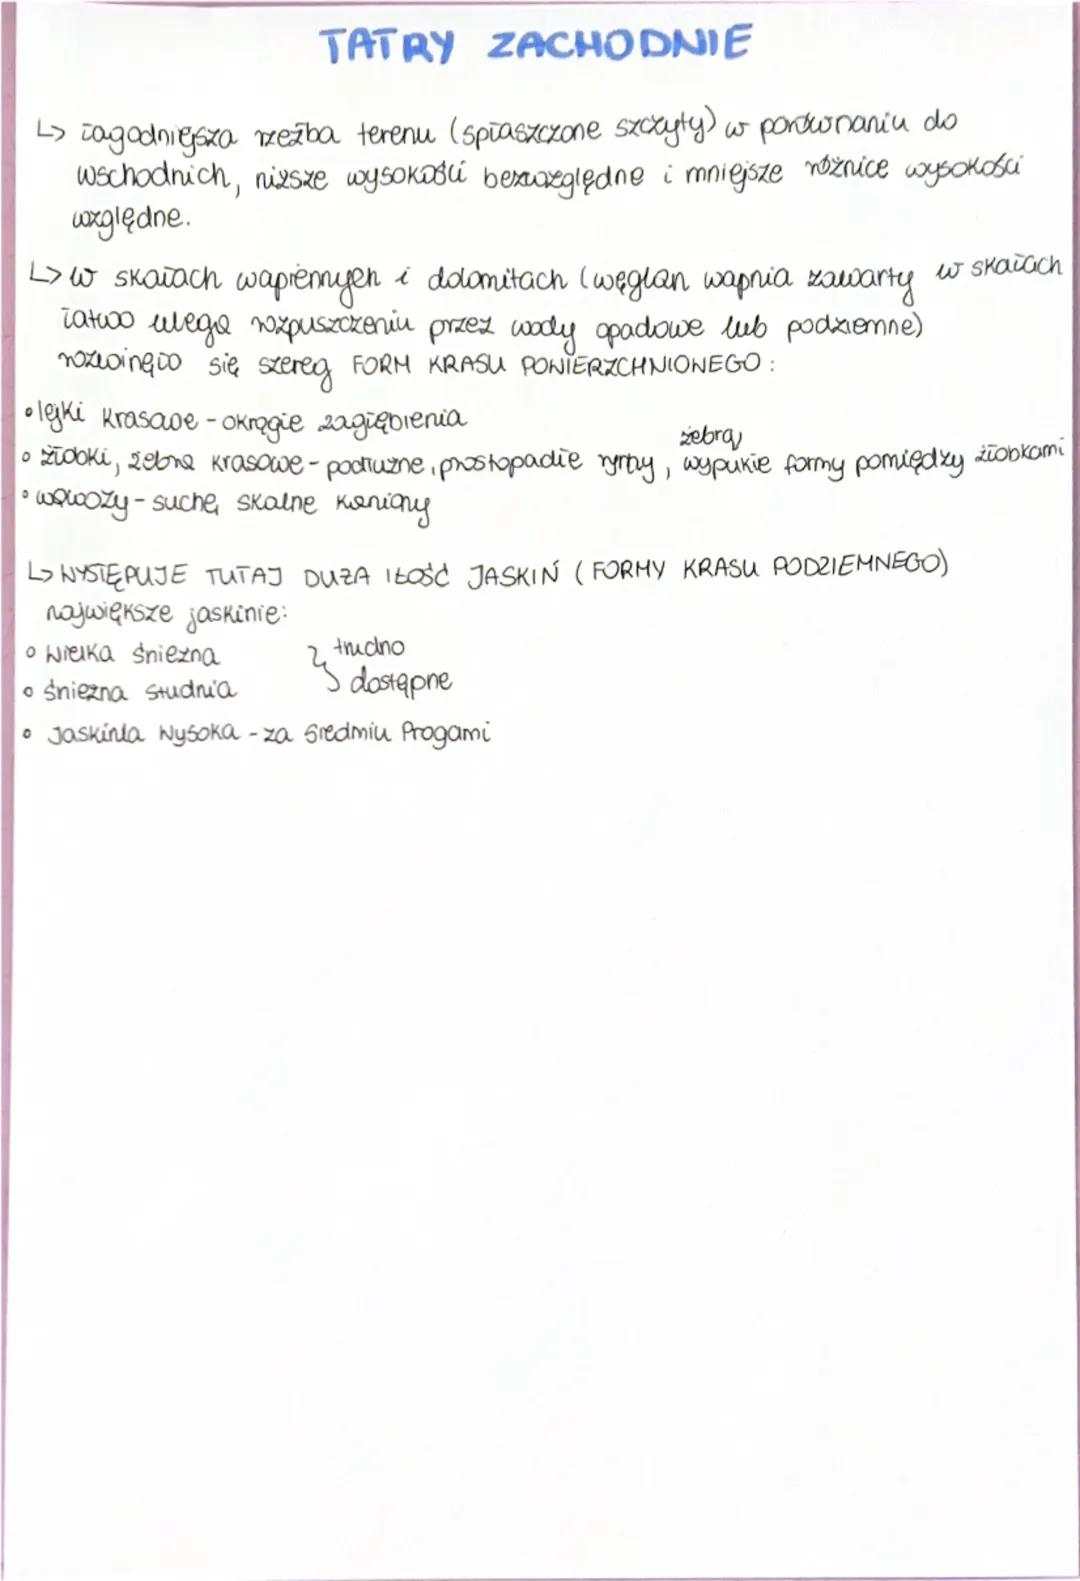 TATRY ZACHODNIE
↳ łagodniejsza rzeźba terenu (spłaszczone szczyty) w porównaniu do
wschodnich, niższe wysokości bezwzględne i mniejsze różnice wysokości
względne.
↳ w skałach wapiennych i dolomitach (węglan wapnia zawarty w skałach
łatwo ulega rozpuszczeniu przez wody opadowe lub podziemne)
rozwinęło się szereg FORM KRASU POWIERZCHNIONEGO:
• lejki krasowe - okrągłe zagłębienia
żebra
• żłobki, żebra krasowe - podłużne, prostopadłe rynny, wypukłe formy pomiędzy żłobkami
• wąwozy - suche, skalne kaniony
↳ WYSTĘPUJE TUTAJ DUŻA IŁOŚĆ JASKIŃ (FORMY KRASU PODZIEMNEGO)
największe jaskinie:
• Wielka Śnieżna } trudno
• Śnieżna Studnia dostępne
• Jaskinia Wysoka - za Siedmiu Progami